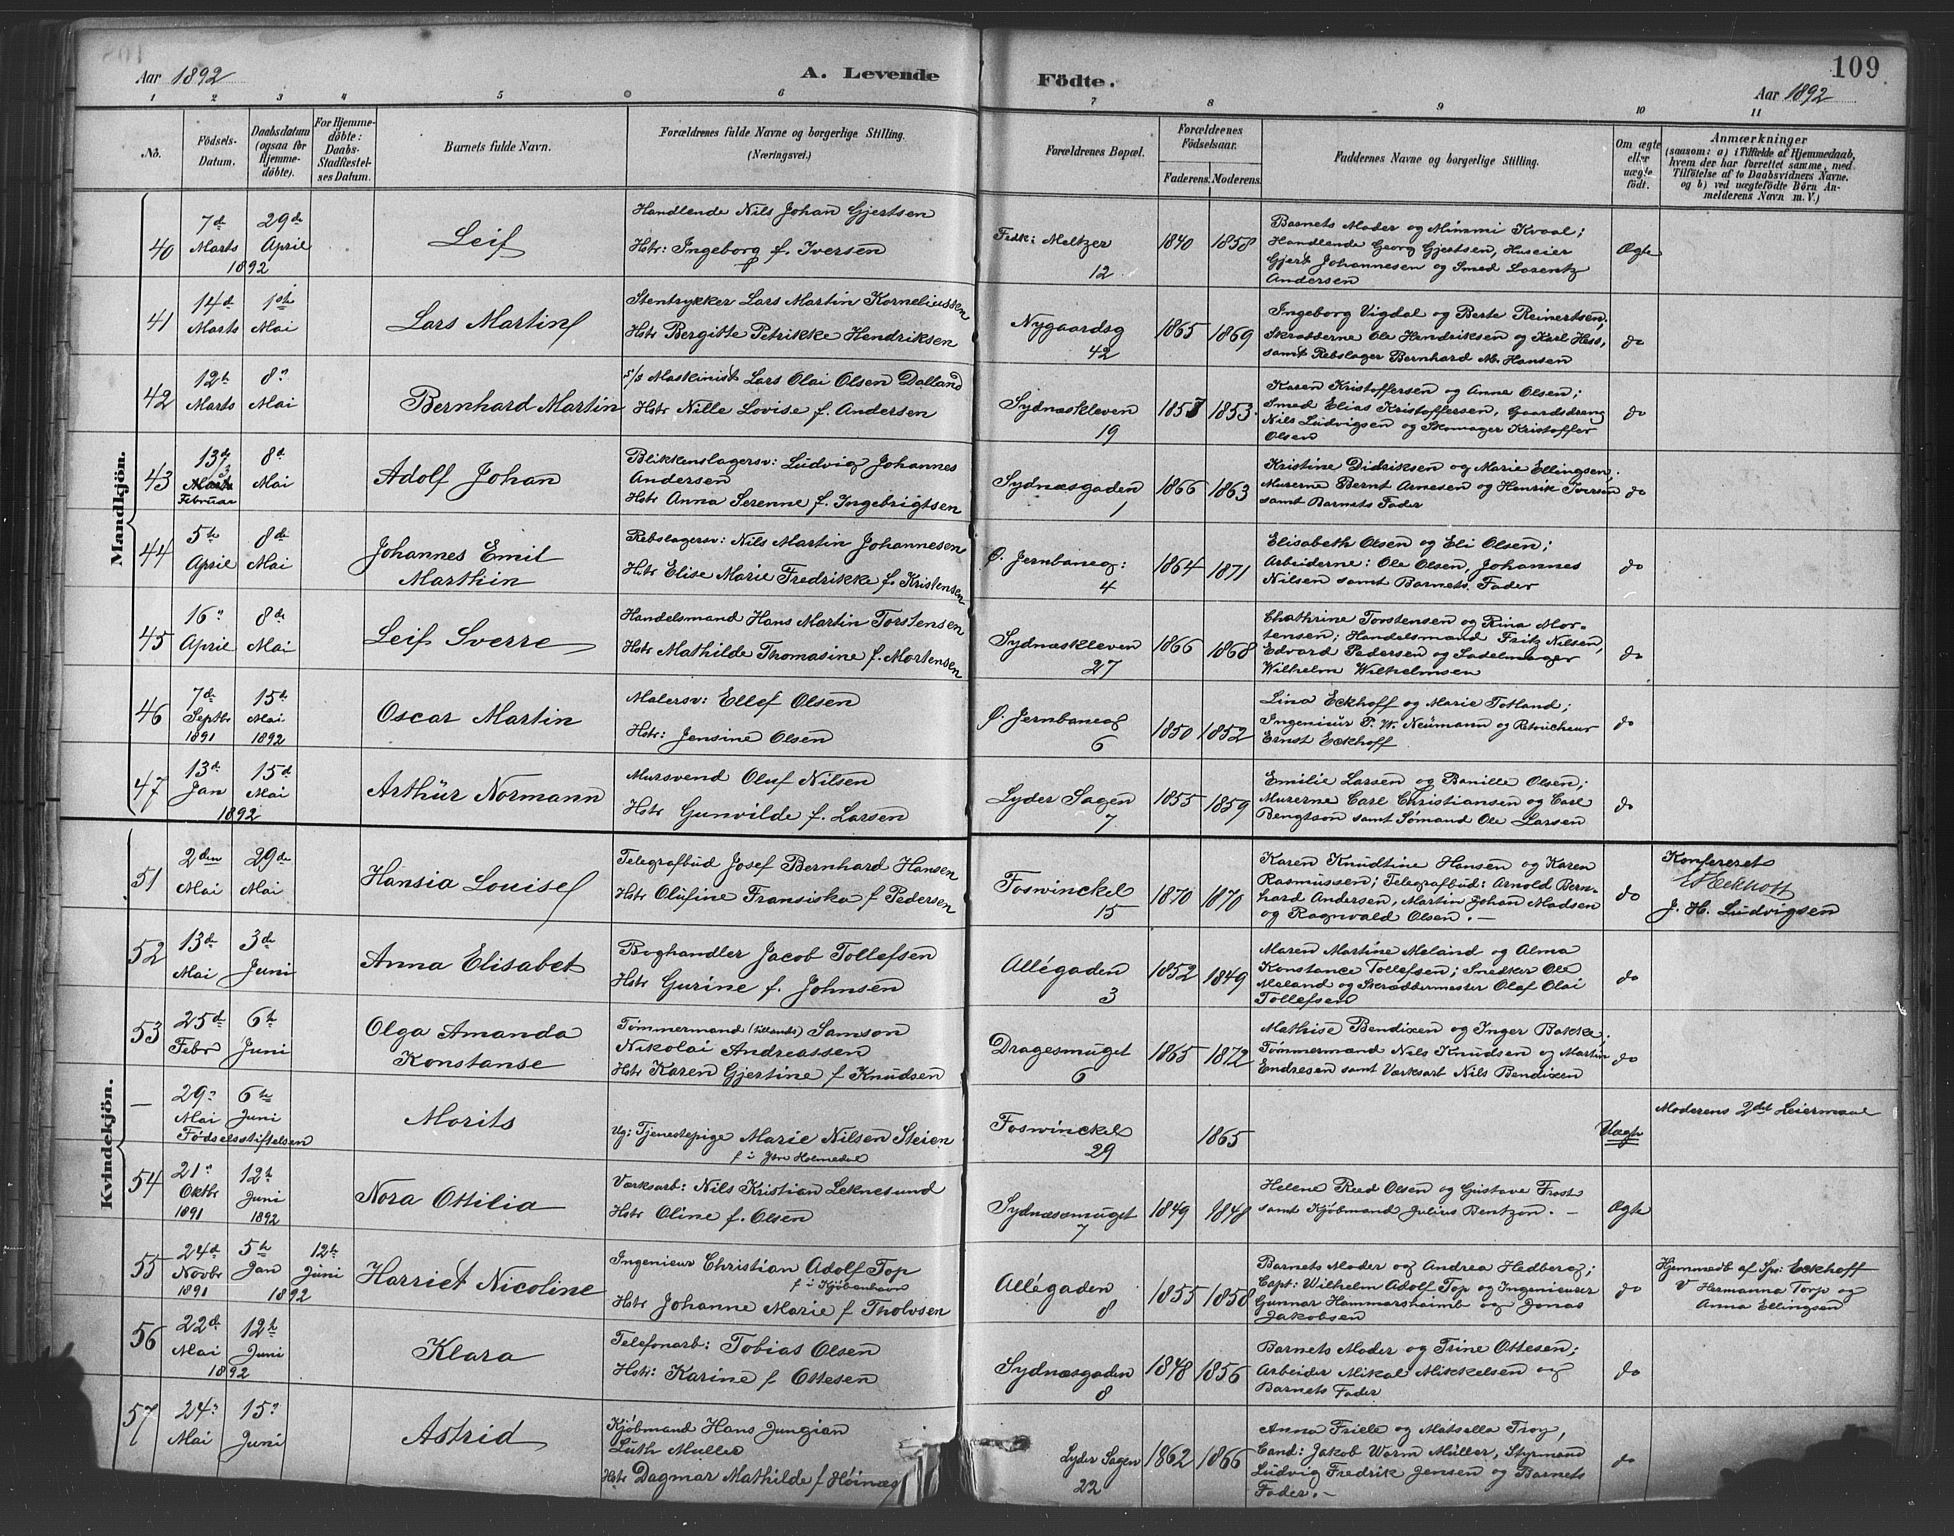 109
Aar 1892
A. Levende Födte.
Aar 1892
1 2 3 4 5 6 7 8 9 10 11
No.
Födsels-
Datum.
Daabsdatum
(ogsaa for
Hjemme-
döbte).
For Hjemme-
döbte:
Daabs-
Stadfæstel-
ses Datum.
Barnets fulde Navn.
Forældrenes fulde Navne og borgerlige Stilling.
(Næringsvei.)
Forældrenes Bopæl.
Forældrenes
Födselsaar.
Faderens. Moderens.
Faddernes Navne og borgerlige Stilling.
Om ægte
eller
uægte
födt.
Anmærkninger
(saasom: a) i Tilfælde af Hjemmedaab,
hvem der har forrettet samme, med
Tilföielse af to Daabsvidners Navne.
og b) ved uægtefödte Börn An-
melderens Navn m. V.)
Mandkjön.
40
7d Marts
29de April
1892
Leif
Handlende Nils Johan Gjertsen
Hstr: Ingeborg f. Iversen
Fedk: Meltzer
12
1840 1858
Barnets Moder og Mimmi Kvaal;
Handlende Georg Gjertsen, Huseier
Gjert Johannesen og Smed Lorentz
Andersen
Ægte
41
14d Marts
1ste Mai
Lars Martin
Stentrykker Lars Martin Korneliussen
Hstr Bergitte Petrikke Hendriksen
Nygaardsg
42
1865 1869
Ingeborg Vigdal og Berte Reinertsen;
Skrædderne Ole Hendriksen og Karl Hess,
samt Rebslager Bernhard M. Hansen
do
42
12te Marts
8" Mai
Bernhard Martin
s/s Maskinist Lars Olai Olsen Dalland
Hstr Nille Lovise f. Andersen
Sydnæskleven
19
1857 1853
Karen Kristoffersen og Anne Olsen;
Smed Elias Kristoffersen, Gaardsdreng
Nils Ludvigsen og Skomager Kristoffer
Olsen
do
43
13de
Februar
8d Mai
Adolf Johan
Blikkenslagersv: Ludvig Johannes
Andersen
Hstr Anna Serenne f. Ingebrigtsen
Sydnæsgaden
1
1866 1863
Kristine Didriksen og Marie Ellingsen;
Murerne Bernt Arnesen og Henrik Iversen
samt Barnets Fader
do
44
5te April
8de Mai
Johannes Emil
Marthin
Rebslagersv: Nils Martin Johannesen
Hstr Elise Marie Fredrikke f. Kristensen
Ø. Jernbaneg:
4
1864 1871
Elisabeth Olsen og Eli Olsen;
Arbeiderne: Ole Olsen, Johannes
Nilsen samt Barnets Fader
do
45
16" April
8de Mai
Leif Sverre
Handelsmand Hans Martin Torstensen
Hstr Mathilde Thomasine f. Mortensen
Sydnæskleven
27
1866 1868
Chathrine Torstensen og Rina Mor-
tensen; Handelsmand Fritz Nilsen,
Edvard Pedersen og Sadelmager
Wilhelm Wilhelmsen
do
46
7d Septbr 1891
15d Mai 1892
Oscar Martin
Malersv: Ellef Olsen
Hstr: Jensine Olsen
Ø. Jernbaneg
6
1850 1852
Lina Eckhoff og Marie Totland;
Ingeniéur P. W. Neumann og Retoucheur
Ernst Eckhoff
do
47
13d Jan
15d Mai
1892
Arthur Normann
Mursvend Oluf Nilsen
Hstr Gunvilde f. Larsen
Lyder Sagen
7
1855 1859
Emilie Larsen og Banille Olsen;
Murerne Carl Christiansen og Carl
Bengtson samt Sømand Ole Larsen
do
Kvindekjön.
51
2den Mai
29de Mai
Hansia Louise
Telegrafbud Josef Bernhard Hansen
Hstr Olufine Fransiska f Pedersen
Foswinckel
15
1870 1870
Karen Knudtine Hansen og Karen
Rasmussen; Telegrafbud: Arnold Bern-
hard Andersen, Martin Johan Madsen
og Ragnvald Olsen. —
do
Konfereret
Eckhoff
J. H. Ludvigsen
52
13d Mai
3de Juni
Anna Elisabet
Boghandler Jacob Tollefsen
Hstr Gurine f. Johnsen
Allégaden
3
1852 1849
Maren Martine Meland og Alma
Konstance Tollefsen; Smedker Ole
Meland og Skræddermester Olaf Olai
Tollefsen
do
53
25d Febr
6te Juni
Olga Amanda
Konstanse
Tømmermand (tillands) Samson
Nikolai Andreassen
Hstr Karen Gjertine f Knudsen
Dragesmuget
6
1865 1872
Mathise Bendixen og Inger Bakke;
Tømmermænd Nils Knudsen og Martin
Endresen samt Værksarb Nils Bendixen
do
—
29" Mai
6te Juni
Fødselsstiftelsen
Morits
Ug: Tjenestepige Marie Nilsen Steien
f i Ytre Holmedal
Foswinckel
29
1865
Uægte
Moderens 2det Leiermaal
54
21" Oktbr 1891
12te Juni 1892
Nora Ottilia
Værksarb: Nils Kristian Leknesund
Hstr Oline f. Olsen
Sydnæssmuget
7
1849 1848
Helene Reed Olsen og Gustave Frost
samt Kjøbmand Julius Bentzon. —
Ægte
55
24d Novbr 1891
5te Jan
1892
12te Juni
Harriet Nicoline
Ingenieur Christian Adolf Top
f i Kjøbenhavn
Hstr Johanne Marie f Tholvsen
Allégaden
8
1855 1858
Barnets Moder og Andrea Hedberg;
Capt: Wilhelm Adolf Top og Ingeniører
Gunnar Hammarshaimb og Jonas
Jakobsen
do
Hjemmedb af Sp: Eckhoff
v Hermanna Torp og
Anna Ellingsen
56
22d Mai
12te Juni
1892
Klara
Telefonarb: Tobias Olsen
Hstr: Karine f Ottesen
Sydnæsgaden
8
1848 1856
Barnets Moder og Trine Ottesen;
Arbeider Mikal Mikkelsen og
Barnets Fader
do
57
24" Mai
15" Juni
Astrid
Kjøbmand Hans Jungian
Luth Muller
Hstr Dagmar Mathilde f Høinæs
Lyder Sagen
22
1862 1866
Anna Friele og Matsella Troy,
Cand: Jakob Worm Müller, Styrmand
Ludvig Fredrik Jensen og Barnets
Fader. —
do